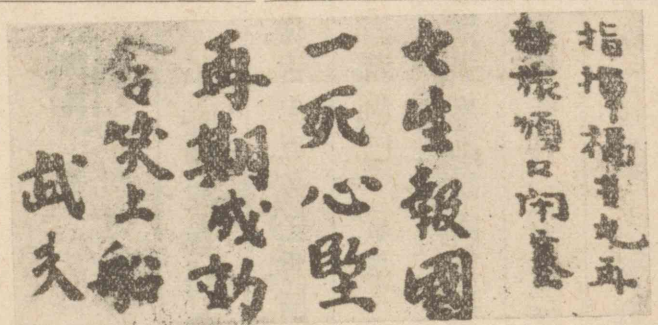 指揮福井丸再
赴旅順口閉塞
七生報國
一死心堅
再期成功
含笑上船
武夫